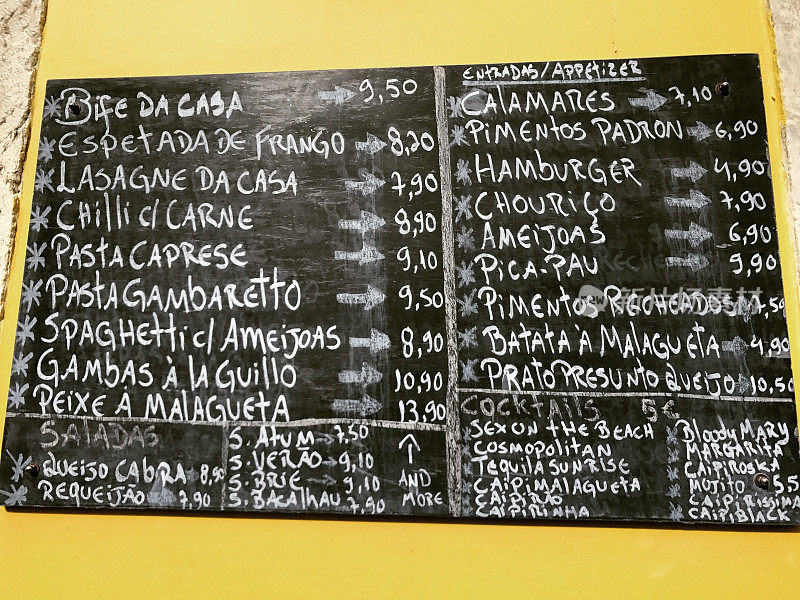 * Bife da Casa → 9,50
* Espetada de Frango → 8,20
* Lasagne da Casa → 7,90
* Chilli c/ Carne → 8,90
* Pasta Caprese → 9,10
* Pasta Gambaretto → 9,50
* Spaghetti c/ Ameijoas → 8,90
* Gambas à la Guillo → 10,90
* Peixe à Malagueta → 13,90
Saladas
* Queijo Cabra → 8,50
* Requeijão → 7,90
S. Atum → 7,50
S. Verão → 9,10
S. Brie → 9,10
S. Bacalhau → 7,90
↑
AND
MORE
Entradas/Appetizer
* Calamares → 7,10
* Pimentos Padron → 6,90
* Hamburger → 4,90
* Chouriço → 7,90
* Ameijoas → 6,90
* Pica-Pau → 9,90
* Pimentos Recheados → 7,50
* Batata à Malagueta → 4,90
* Prato Presunto Queijo → 10,50
Cocktails 5€
* Sex on the Beach
* Cosmopolitan
* Tequila Sunrise
* Caipimalagueta
* Caipirão
* Caipirinha
* Bloody Mary
* Margarita
* Caipiroska
* Mojito → 5,5
* Caipirissima
* Caipiblack
新片场素材